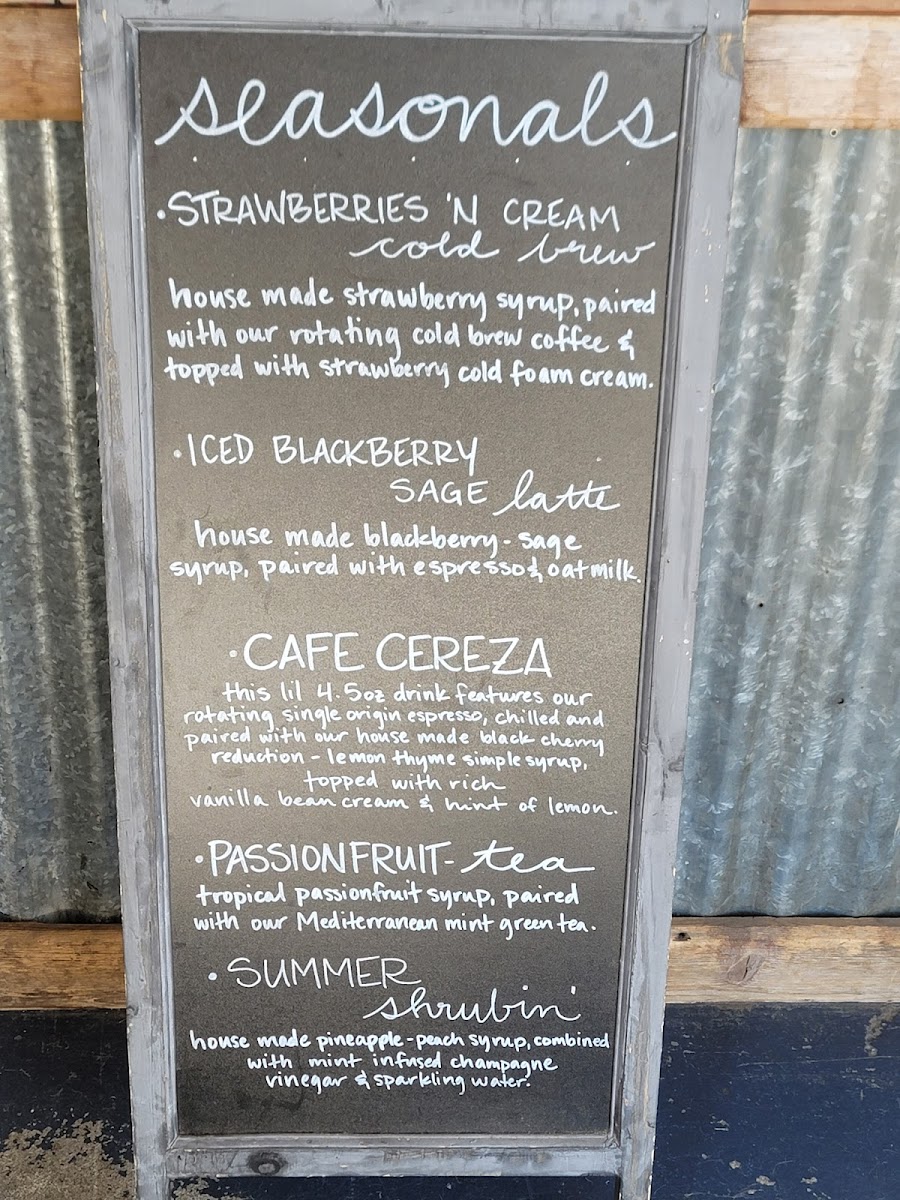 seasonals
• STRAWBERRIES 'N CREAM
cold brew
house made strawberry syrup, paired
with our rotating cold brew coffee &
topped with strawberry cold foam cream.
• ICED BLACKBERRY
SAGE latte
house made blackberry - sage
syrup, paired with espresso & oatmilk.
• CAFE CEREZA
this lil 4.5oz drink features our
rotating single origin espresso, chilled and
paired with our house made black cherry
reduction - lemon thyme simple syrup,
topped with rich
vanilla bean cream & hint of lemon.
• PASSIONFRUIT - tea
tropical passionfruit syrup, paired
with our Mediterranean mint green tea.
• SUMMER
shrubin'
house made pineapple - peach syrup, combined
with mint infused champagne
vinegar & sparkling water.